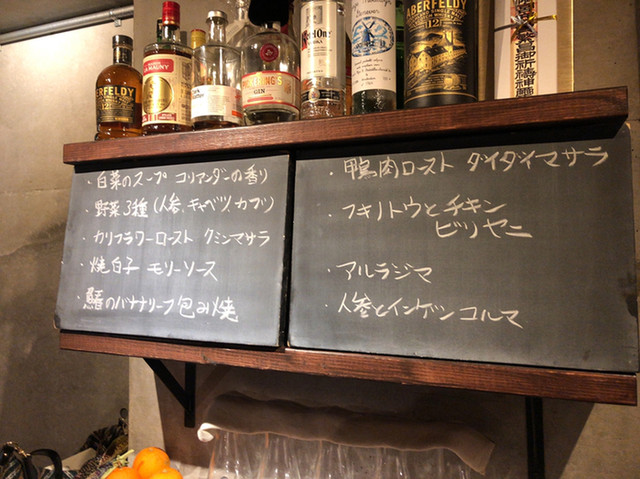 ABERFELDY
KETEL ONE
VODKA
GIN
ABERFELDY
12
・白菜のスープ コリアンダーの香り
・野菜3種(人参、キャベツ、カブ)
・カリフラワーロースト クミンマサラ
・焼白子 モリーソース
・鰆のバナナリーフ包み焼
・鴨肉ロースト ダイダイマサラ
・フキノトウとチキン
ビリヤニ
・アルラジマ
・人参とインゲン コルマ